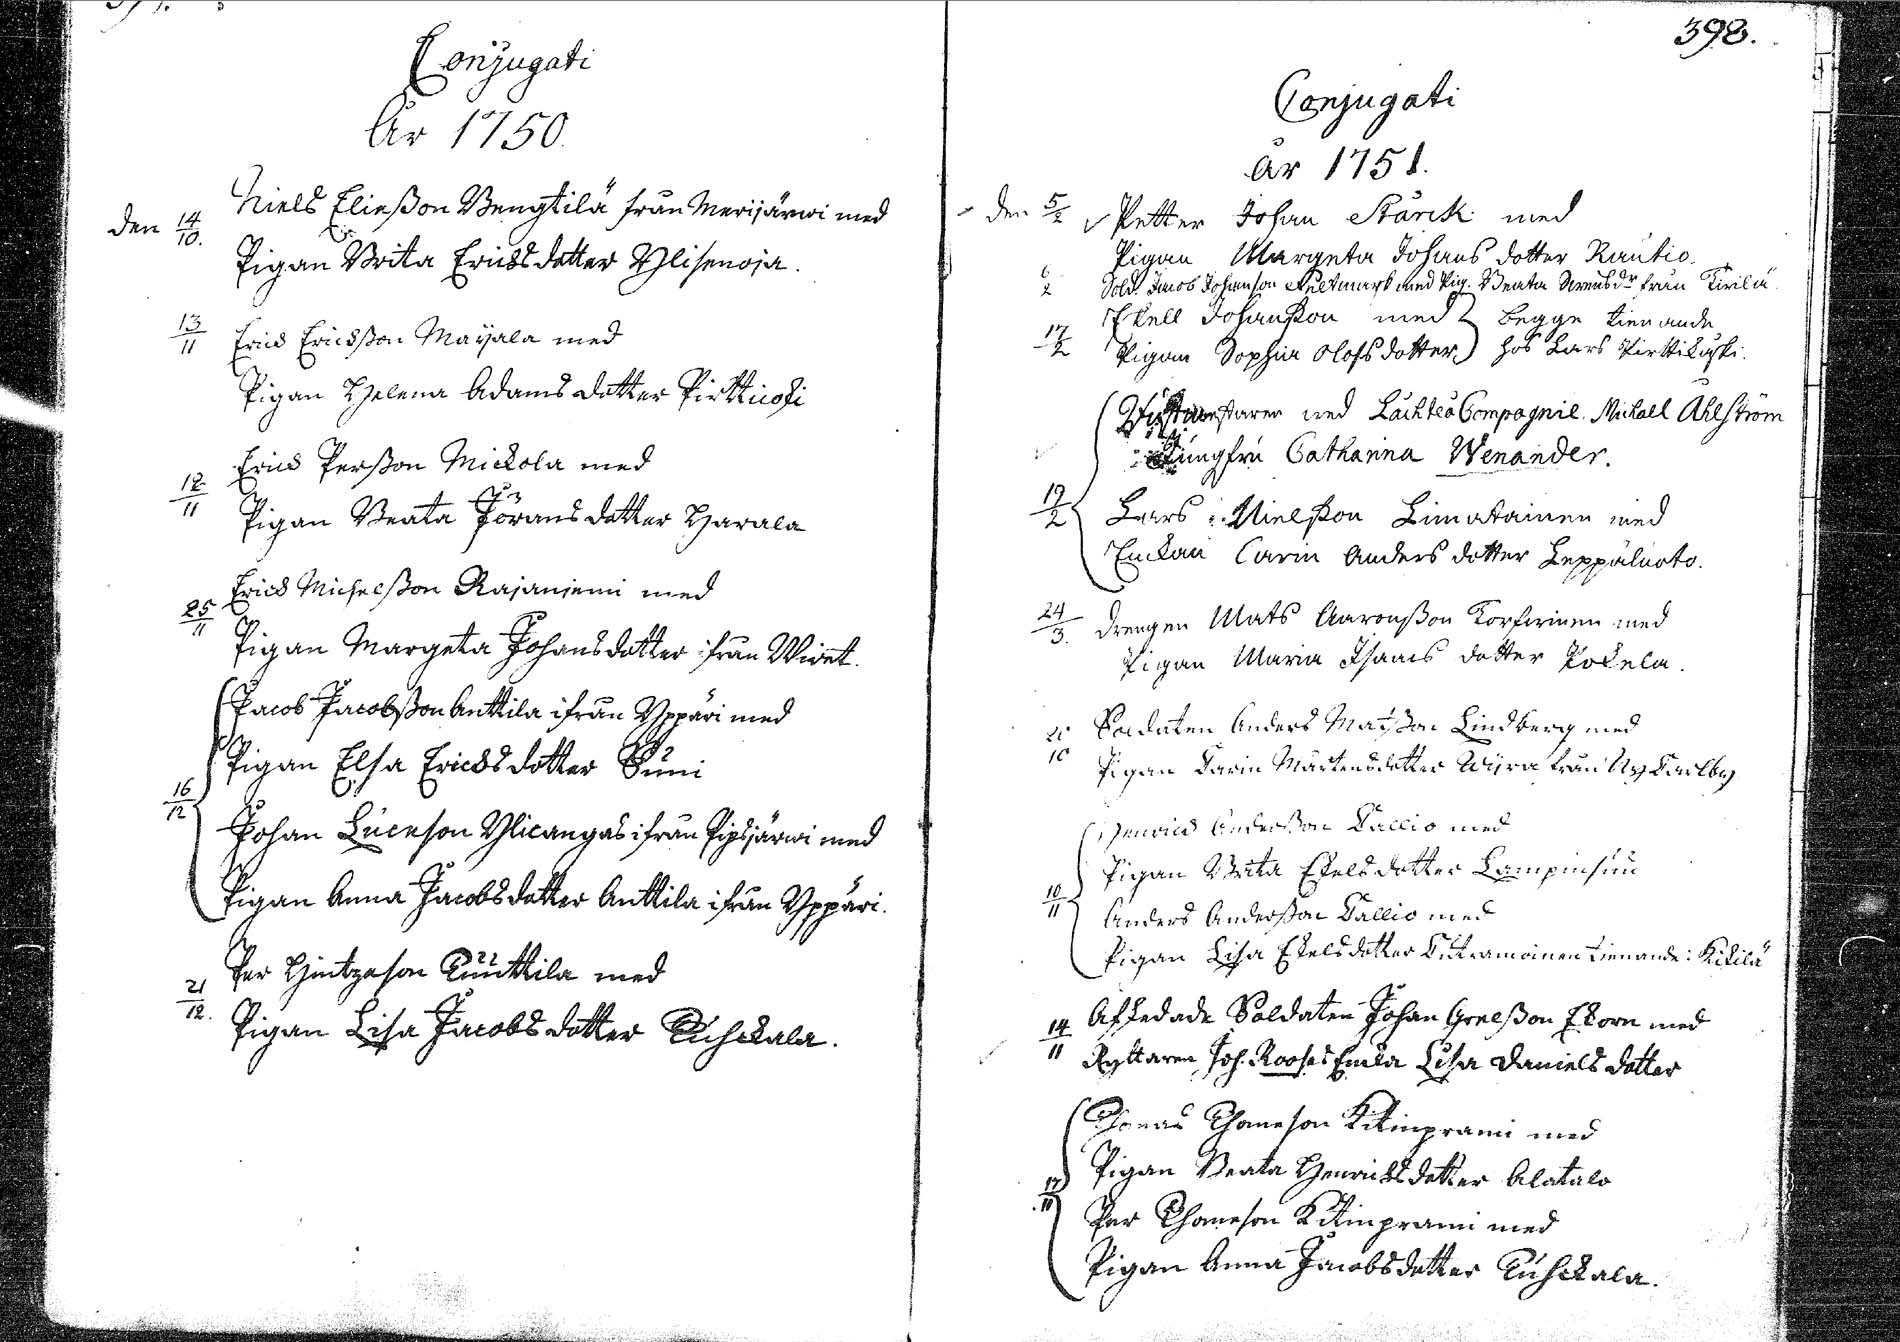 Conjugati
År 1750.
den 14/10. Niels Eliæßon Bengtilä från Merijärwi med
Pigan Brita Ericsdotter Ylisenoja.
13/11 Erics Ericsßon Mayala med
Pigan Helena Adamsdotter Pirtticoski
12/11 Erics Perßon Mickola med
Pigan Beata Jöransdotter Harala
25/11 Erics Michelßon Rajaniemi med
Pigan Margeta Johansdotter ifrån Wiret.
16/12 Jacob Jacobßon Anttila ifrån Yppäri med
Pigan Elsa Ericsdotter Suni
Johan Lucæson Ylicangas ifrån Pipsjärwi med
Pigan Anna Jacobsdotter Anttila ifrån Yppäri.
21/12. Per Hintzason Kuuttila med
Pigan Lisa Jacobsdotter Tuhckala.
398.
Conjugati
år 1751.
den 5/2 Petter Johan Starck med
Pigan Margeta Johansdotter Rautio.
6/2 Sold. Jacob Johanson med Pig. Beata från Tirilä
17/2 Eskell Johanßon med begge tienande
Pigan Sophia Olofsdotter hos Lars Pirttikoski.
med Lächteå Compagnie. Michall Ahlström
Jungfru Catharina Wenander.
19/2 Lars Nielßon Limatainen med
Enckan Carin Andersdotter Leppäluoto.
24/3. Drengen Mats Aaronßon Korpirinen med
Pigan Maria Isaacsdotter Pokela.
20/10 Soldaten Anders Matßon Lindberg med
Pigan Karin Mårtensdotter Wijra från Ny Karlby
10/11 Henrics Anderßon Kallio med
Pigan Brita Eskelsdotter Lampinsuu
Anders Anderßon Kallio med
Pigan Lisa Eskelsdotter Kukramoinen tienande i Kikilä
14/11 Afskedade Soldaten Johan Grelßon Ekorn med
Ryttaren Joh. Rooses Encka Lisa Danielsdotter
17/11 Thomas Thomeson Kitinprami med
Pigan Beata Henricksdotter Alatalo
Per Thomeson Kitinprami med
Pigan Anna Jacobsdotter Tuhckala.